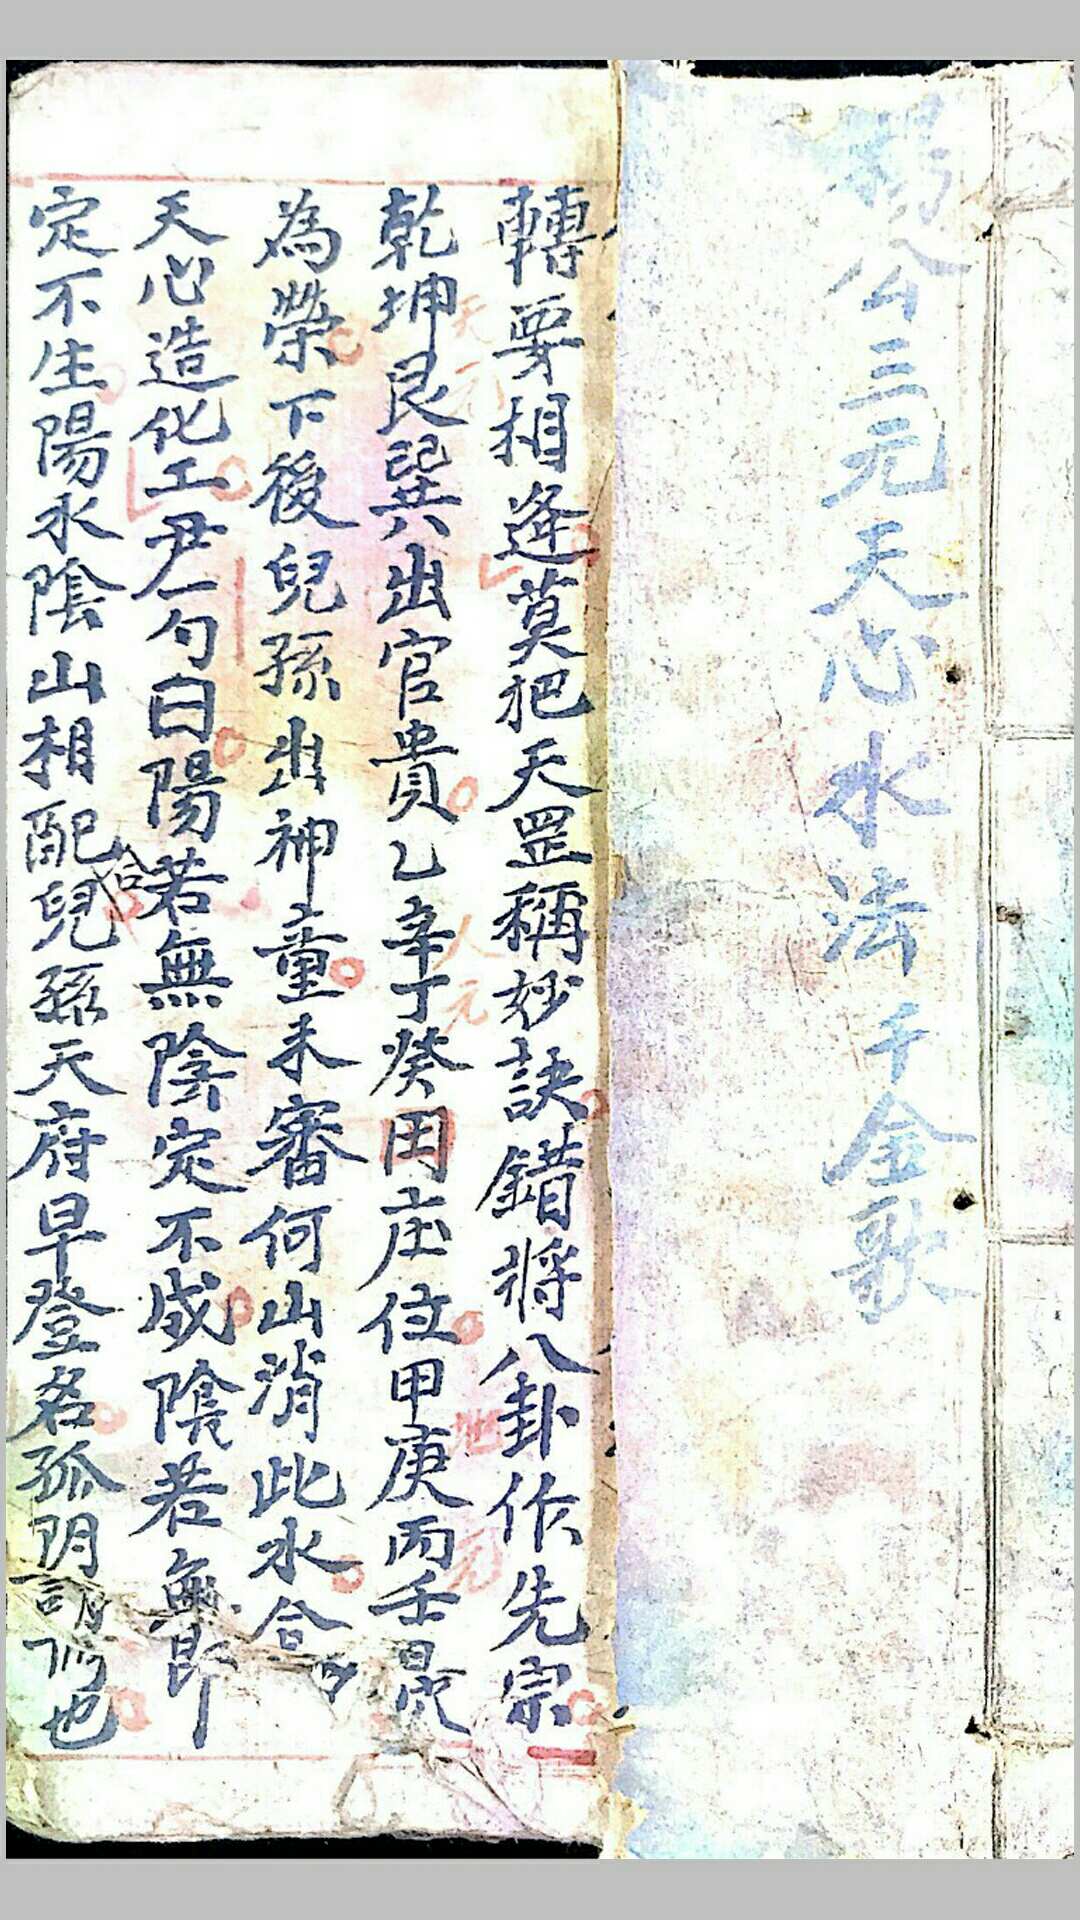 楊公三元天心水法千金歌
轉要相逢莫把天罡稱妙訣錯將八卦作先宗
乾坤艮巽出官貴乙辛丁癸田庄位甲庚丙壬最
天元
人元
地元
為榮下後兒孫出神童未審何山消此水合
天心造化工尹一勺曰陽若無陰定不成陰若無陽
定不生陽水陰山相配合兒孫天府早登名孤阴謂也